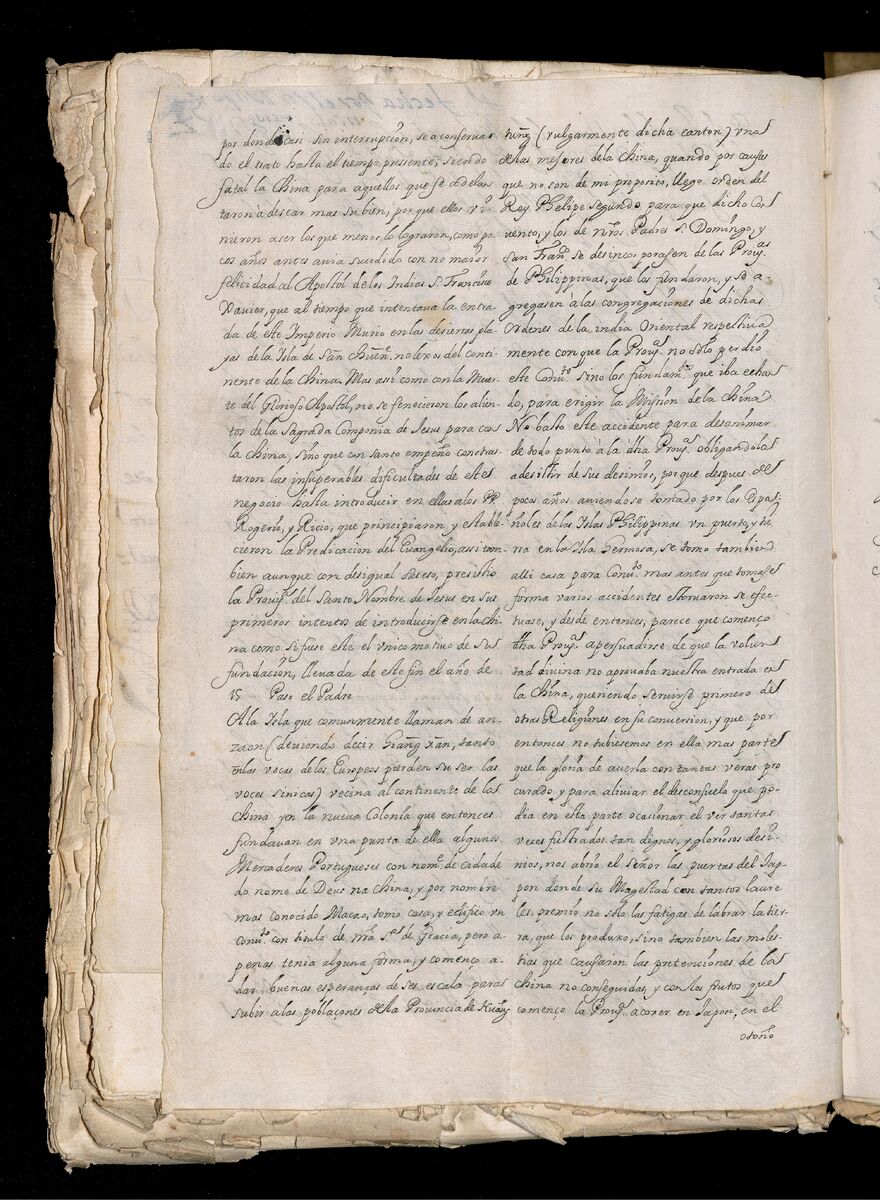 por donde casi sin interrupción, se a conserva
do el trato hasta el tiempo presente, siendo
fatal la China para aquellos que se adelan
taron a desear mas su bien, porque ellos vi
nieron a ser los que menos lo lograron, como po
cos años antes avia sucedido con no maior
felicidad al Apostol de los Indias S. Francisco
Xavier, que al tiempo que intentava la entra
da de este Imperio Murio en las desiertas pla
yas de la Isla de San no lexos del conti
nente de la China. Mas asi como con la Muer
te del Glorioso Apostol, no se fenecieron los alien
tos de la Sagrada Compania de Jesus para con
la China, sino que con santo empeño contras
taron las insuperables dificultades de este
negocio hasta introducir en ella a los PP.
Rogerio, y Ricio, que principiaron y estable
cieron la Predicacion del Evangelio, assi tam
bien aunque con desigual suceso, presistio
la Prouᵃ. del Santo Nombre de Jesus en sus
primeros intentos de introducirse en la Chi
na como si fuese esta el vnico motivo de su
fundación, llevada de este fin el año de
15 Paso el Padre
A la Isla que comunmente llaman de an
zaon (deviendo decir Giang xan, tanto
en las vocas de los Europeos pierden su ser las
voces sinicas) vecina al continente de la
China y en la nueva Colonia que entonces
fundavan en vna punta de ella algunos
Mercaderes Portugueses con nomᵉ. de Cidade
do nome de Deus na China, y por nombre
mas conocido Macao, tomo casa, y edifico vn
Conuᵗᵒ con titulo de nrã Sʳᵃ de Gracia, pero a
penas tenia alguna forma, y començo a
dar buenas esperanças de ser escala para
subir a las poblaçones de la Provincia de Kuang
tung (vulgarmente dicha canton) vna
de las mejores de la China, quando por causas
que no son de mi proposito, llego orden del
Rey Phelipe segundo para que dicho Con
vento, y los de nr̃os Padres S. Domingo, y
San Franᶜᵒ se desincorporasen de las Prouᵃˢ
de Philippinas, que los fundaron, y se a-
gregasen à las congregaciones de dichas
Ordenes de la india Oriental respectiva
mente con que la Prouᵃ. no solo perdio
este Conuᵗᵒ. sino los fundamᵗᵒˢ que iba echan
do, para erigir la Mission de la China
No basto este accidente para desanimar
de todo punto à la dha Prouᵃ. obligandola
a desistir de sus desinios, porque despues de
pocos años auiendose tomado por los Espa
ñoles de las Islas Philippinas vn puerto, y
en la Isla Hermosa, se tomo tambien
alli casa para Conuᵗᵒ. mas antes que tomase
forma varios accidentes estoruaron se efec
tuase, y desde entonces, parece que començo
dha Prouᵃ. a persuadirse de que la volun
tad divina no aprovaba nuestra entrada en
la China, queriendo seruirse primero de
otras Religiones en su conversion, y que por
entonces no tubiesemos en ella mas parte
que la gloria de averla con tantas veras pro
curado y para aliviar el desconsuelo que po-
dia en esta parte ocasionar el ver tantas
veces fustrados tan dignos, y gloriosos desi-
nios, nos abrio el Señor las puertas del Jap-
pon donde su Magestad con tantos laure
les premio no solo las fatigas de labrar la tier
ra, que los produxo, sino tambien las moles-
tias que causaron las pretenciones de la
China no conseguidas, y con los frutos que
començo la Prouᵃ. a corer en Japon, en el
otoño